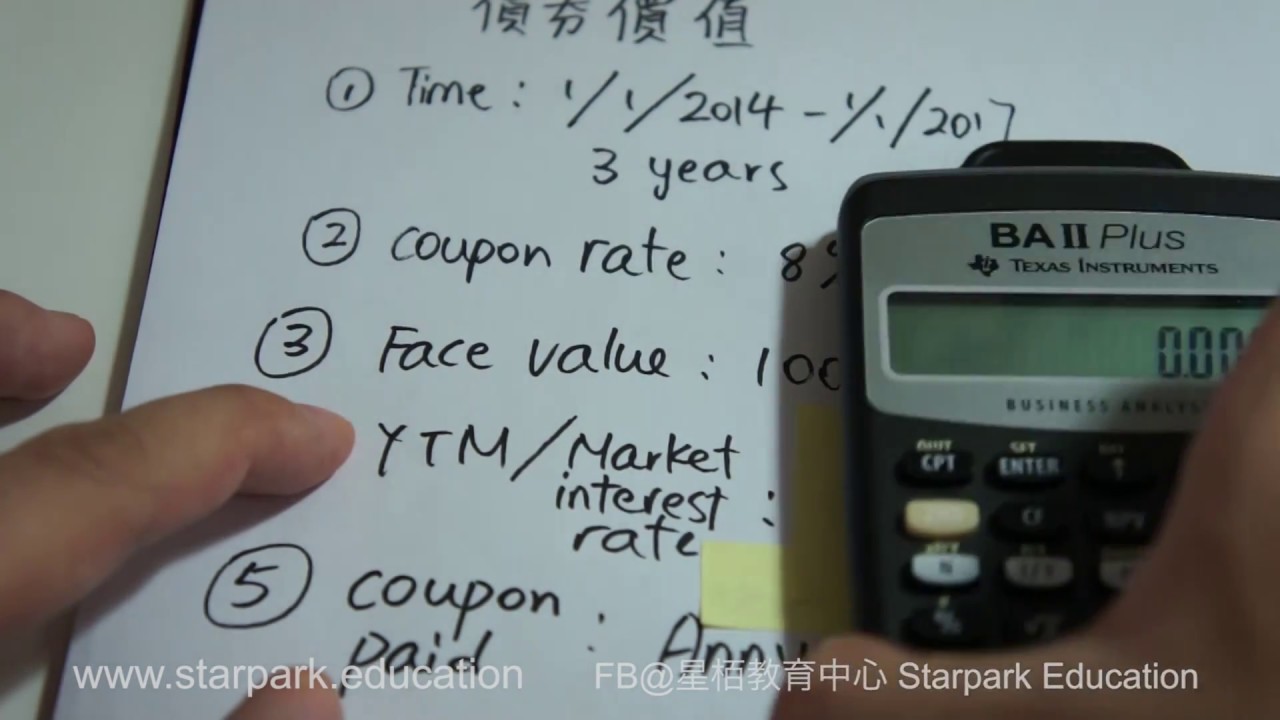 債券價值
① Time : 1/1/2014 - 1/1/2017
3 years
② coupon rate : 8%
③ Face value : 100
YTM/Market
interest :
rate
⑤ coupon :
paid
BA II Plus
TEXAS INSTRUMENTS
0.00
BUSINESS ANALYS
QUIT SET
CPT ENTER
CF NPV
N I/Y
www.starpark.education FB@星栢教育中心 Starpark Education